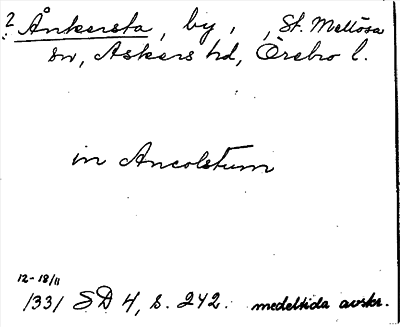 ? Ånkersta, by, , St. Mellösa
: sn, Askers hd, Örebro l.
in Ancolstum
12-18/11
1331 SD 4, s. 242. medeltida avskr.